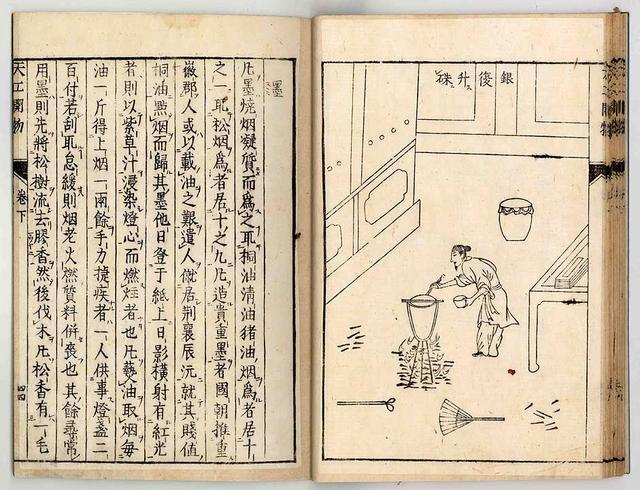 銀復升硃
墨
凡墨燒烟凝質而爲之取桐油清油猪油烟爲者居十
之一取松烟爲者居十之九凡造貴重墨者國朝推重
徽郡人或以載油之艱遣人僦居荊襄辰沅就其賤值
桐油點烟而歸其墨他日登于紙上日影橫射有紅光
者則以紫草汁浸染燈心而燃炷者也凡爇油取烟每
油一斤得上烟一兩餘手力捷疾者一人供事燈盞二
百付若刮取怠緩則烟老火燃質料併喪也其餘尋常
用墨則先將松樹流去膠香然後伐木凡松香有一毛
天工開物 卷下 四四